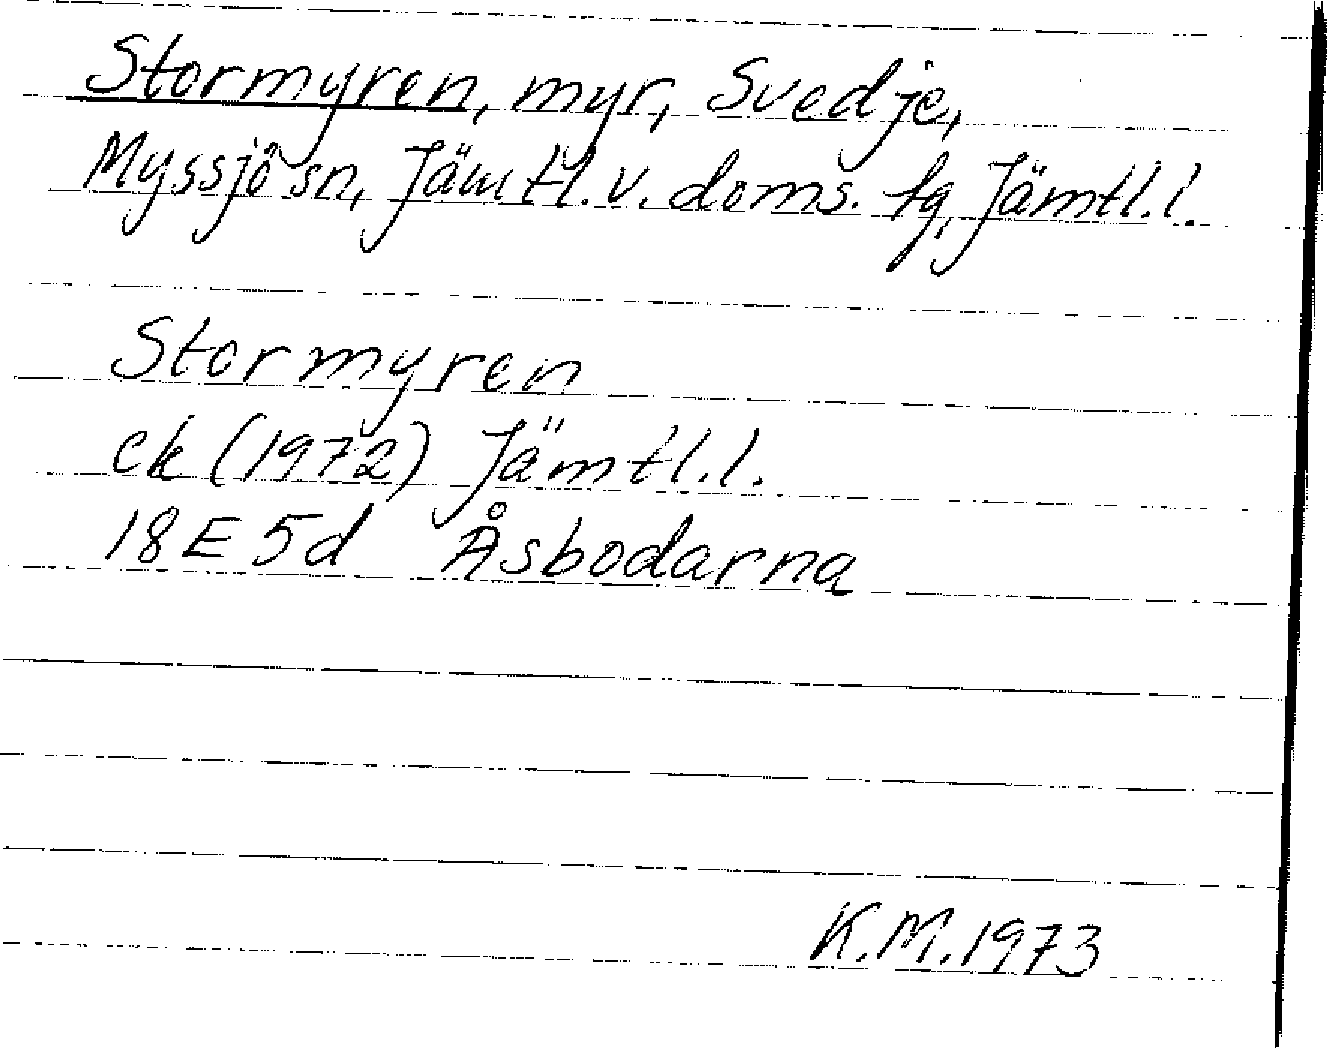 Stormyren, myr, Svedje,
Myssjö sn, Jämtl. v. doms. fq, Jämtl. l.
Stormyren
ek (1972) Jämtl. l.
18E 5d Åsbodarna
K.M. 1973